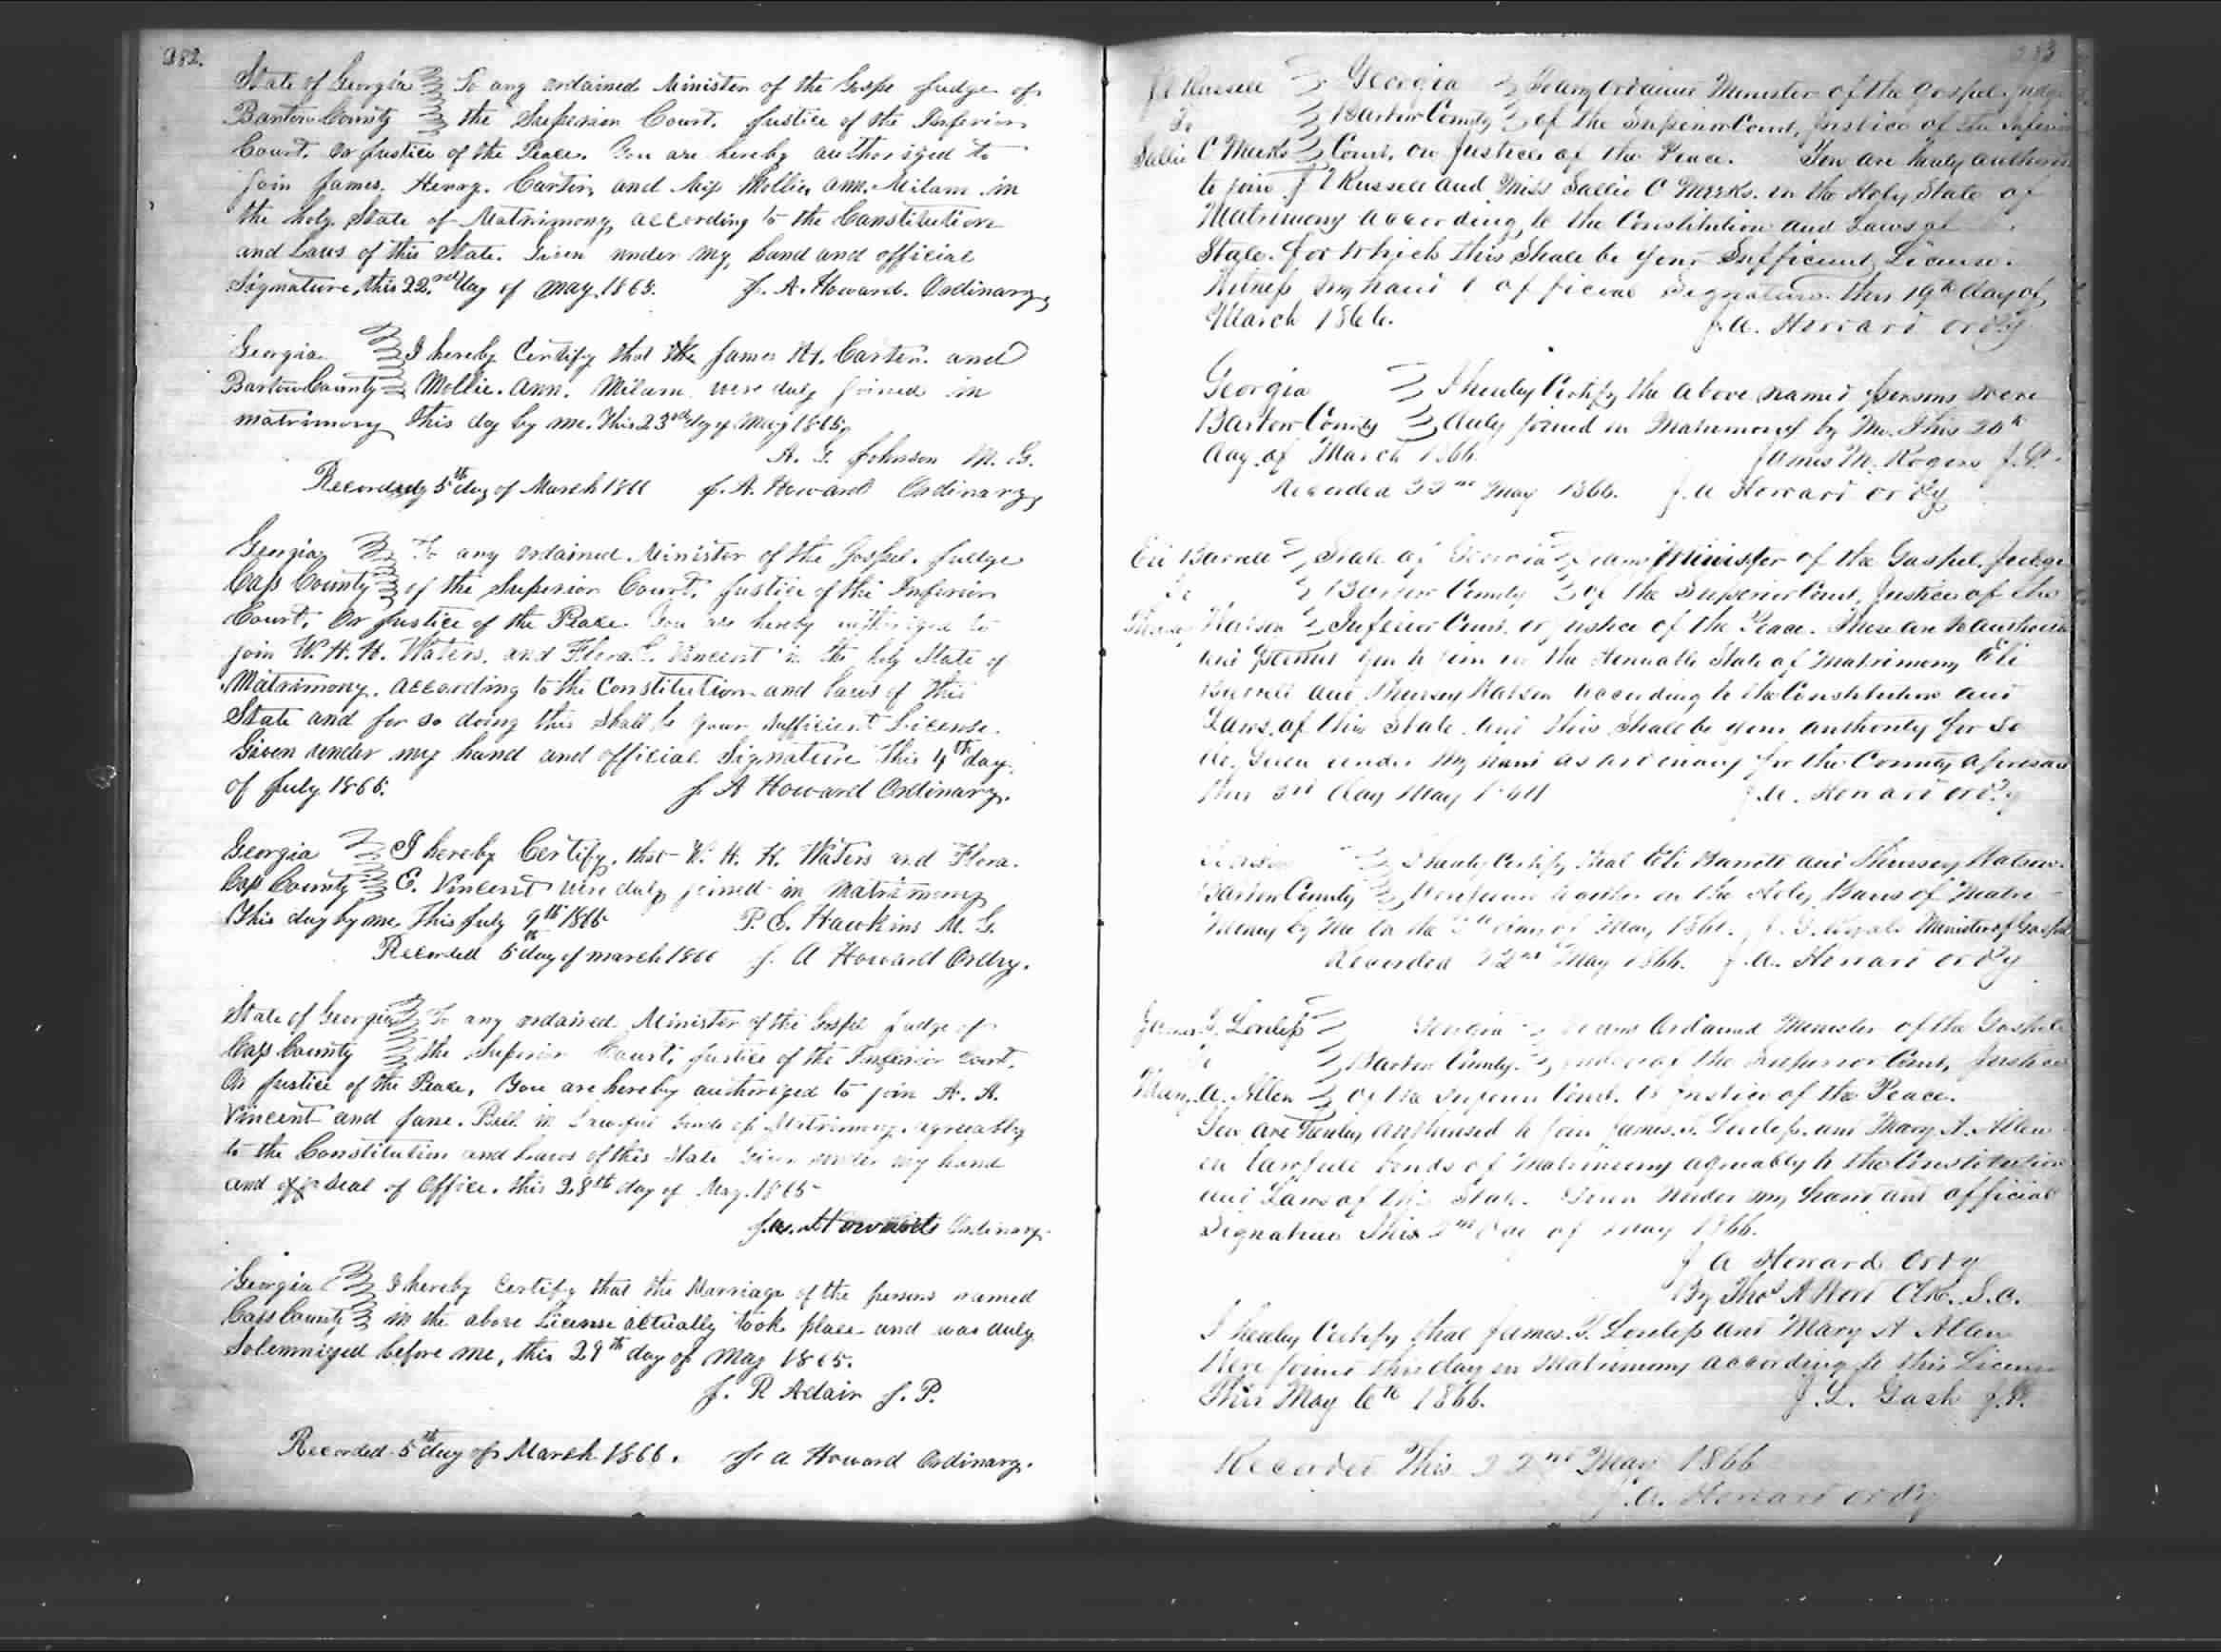 382.
State of Georgia To any ordained Minister of the Gospe Judge of
Bartow County the Superior Court. Justice of the Inferior
Court. Or Justice of the Peace. You are hereby authorized to
join James. Henry. Carter, and Miss Mollie Ann. Milam in
the holy State of Matrimony, according to the Constitution
and Laws of this State. Given under my, hand and official
Signature, this 22nd day of May, 1865. J. A. Howard. Ordinary,
Georgia I hereby Certify that James H. Carter. and
Bartow County Mollie. Ann. Milam were duly joined in
matrimony this day by me. This 23rd day of May 1865,
A. G. Johnson M. G.
Recorded 5th day of March 1866 J. A. Howard Ordinary,
Georgia To any ordained Minister of the Gospel. Judge
Cass County of the Superior Court. Justice of the Inferior
Court. Or Justice of the Peace. You are hereby authorized to
join W. H. H. Waters. and Flora. E. Vincent in the holy State of
Matrimony. according to the Constitution and Laws of this
State and for so doing this Shall be your Sufficient License.
Given under my hand and official Signature This 4th day
of July 1865. J. A Howard Ordinary.
Georgia I hereby Certify. that W. H. H. Waters and Flora.
Cass County E. Vincent were duly joined in Matrimony
This day by me, This July 9th 1865 P. C. Hawkins M. G.
Recorded 5th day of march 1866 J. A Howard Ordry.
State of Georgia To any ordained Minister of the Gospel Judge of
Cass County the Superior Court. Justice of the Inferior Court.
Or Justice of the Peace. You are hereby authorized to join A. A.
Vincent and Jane. Bell in Lawful bonds of Matrimony. agreeably
to the Constitution and Laws of this State Given under my hand
and Seal of Office. this 28th day of May. 1865
J. A. Howard Ordinary.
Georgia I hereby Certify that the Marriage of the persons named
Cass County in the above License actually took place and was duly
Solemnized before me, this 29th day of May 1865.
J. R Adair J. P.
Recorded 5th day of March 1866. J. A Howard Ordinary.
Russell Georgia To any Ordained Minister of the Gospel. Judge
To Bartow County of the Superior Court, Justice of the Inferior
Sallie C Meeks Court, or Justice of the Peace. You are hereby authorized
to join Russell and Miss Sallie C Meeks. in the Holy State of
Matrimony according to the Constitution and Laws of
State. for which this Shall be your Sufficient License.
Witness my hand & official Signature. this 19th day of
March 1866. J. A. Howard Ordy
Georgia I hereby Certify the above named persons were
Bartow County duly joined in Matrimony by Me. This 20th
day of March 1866. James M. Rogers J. P.
Recorded 22nd May 1866. J. A Howard Ordy
Eli Barrett State of Georgia To any Minister of the Gospel, Judge
To Bartow County of the Superior Court, Justice of the
Inferior Court. or Justice of the Peace. These are to authorize
and permit you to join in the Honorable State of Matrimony Eli
Barrett and according to the Constitution and
Laws of this State and this Shall be your authority for So
do. Given under My hand as ordinary for the County aforesaid
This 3rd day May J. A. Howard Ordy
Georgia I hereby Certify that Eli Barrett and
Bartow County together in the Holy Bans of Matri
mony by Me on the May Minister of Gospel
Recorded 22nd May 1866. J. A. Howard Ordy
James T. Georgia To any Ordained Minister of the Gospel
To Bartow County. Judge of the Superior Court, Justice
Mary A. Allen Of the Inferior Court. or Justice of the Peace.
You are hereby authorised to join James. T. and Mary A. Allen
in Lawfull bonds of Matrimony agreeably to the Constitution
and Laws of this State. Given under my hand and official
Signature This 2nd day of May 1866.
J A Howard Ordy
By Thos A Clk. S. C.
I hereby Certify that James. T. and Mary A Allen
Were joined this day in Matrimony according to this License
This May 6th 1866. J. L. Gash J. P.
Recorded This 22nd May 1866
J. A. Howard Ordy